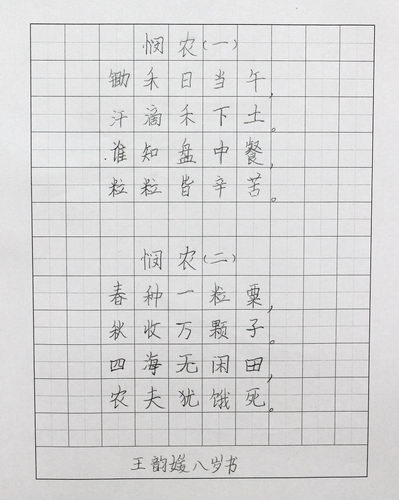 悯农(一)
锄禾日当午,
汗滴禾下土。
谁知盘中餐,
粒粒皆辛苦。
悯农(二)
春种一粒粟,
秋收万颗子。
四海无闲田,
农夫犹饿死。
王韵媛八岁书